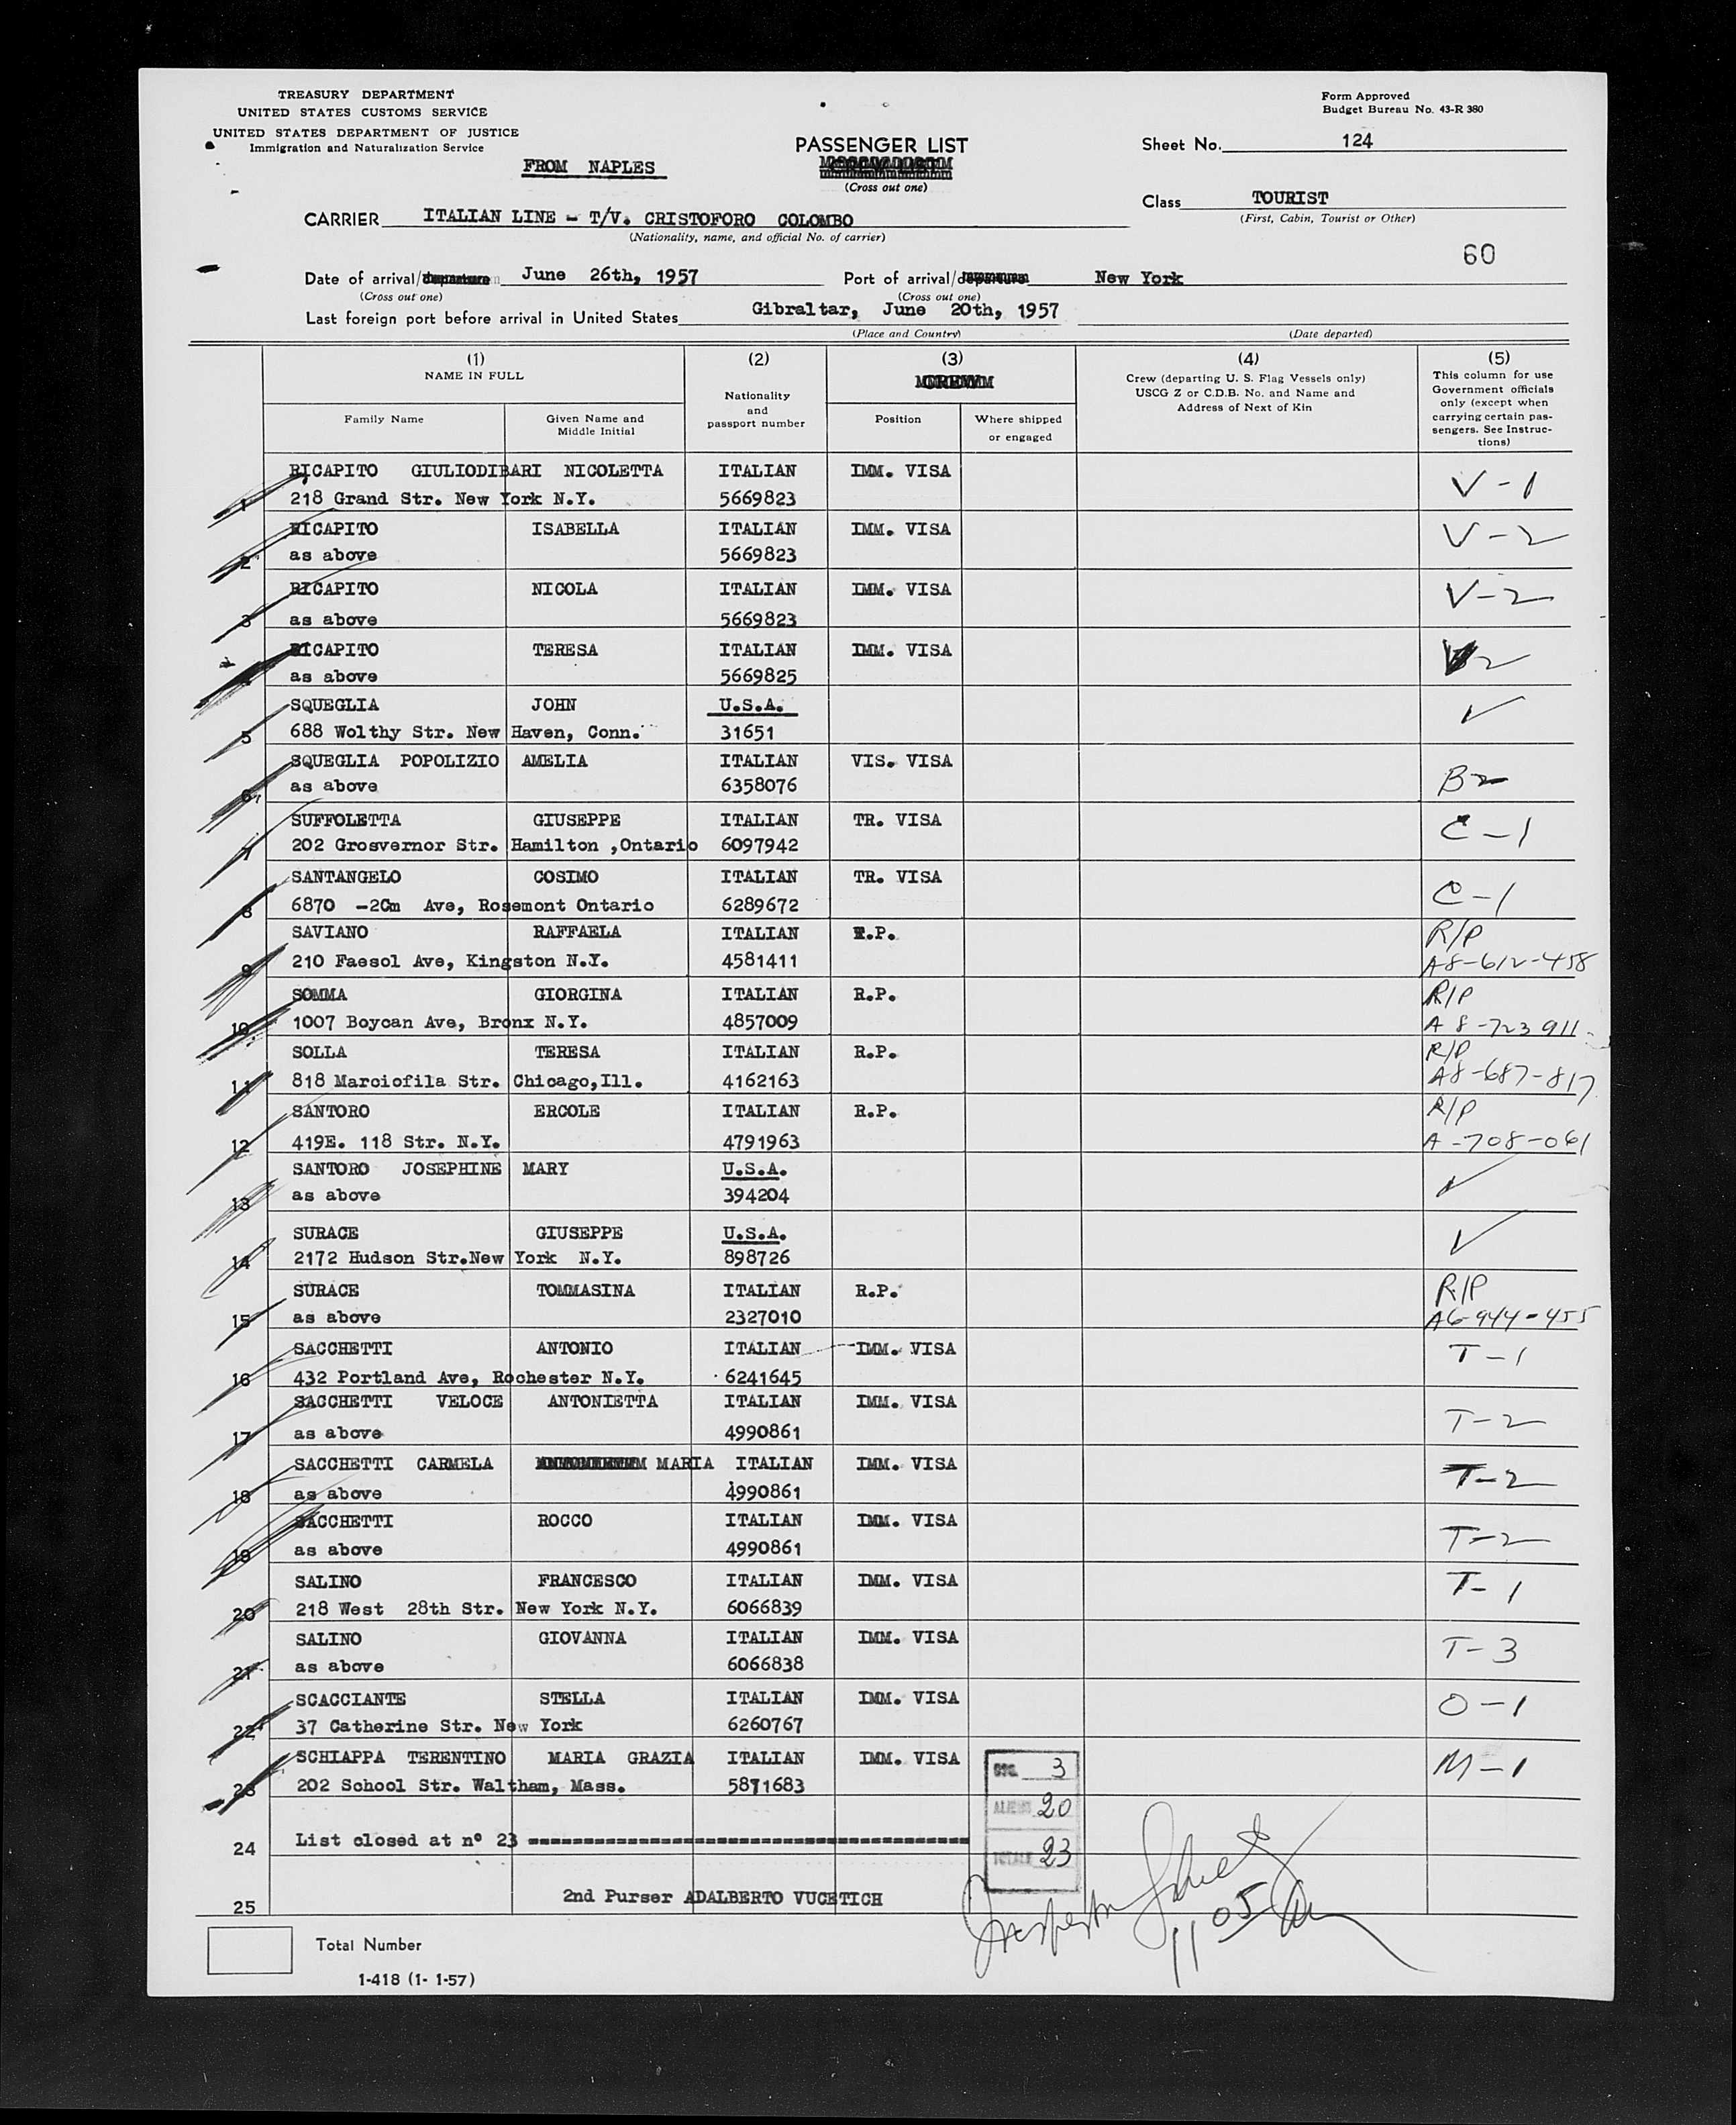 TREASURY DEPARTMENT
UNITED STATES CUSTOMS SERVICE
UNITED STATES DEPARTMENT OF JUSTICE
Immigration and Naturalization Service
FROM NAPLES
PASSENGER LIST
(Cross out one)
Form Approved
Budget Bureau No. 43-R 380
Sheet No. 124
Class TOURIST
(First, Cabin, Tourist or Other)
CARRIER ITALIAN LINE - T/V. CRISTOFORO COLOMBO
(Nationality, name, and official No. of carrier)
60
Date of arrival/departure June 26th, 1957 Port of arrival/departure New York
(Cross out one) (Cross out one)
Last foreign port before arrival in United States Gibraltar, June 20th, 1957
(Place and Country) (Date departed)
(1) (2) (3) (4) (5)
NAME IN FULL
Family Name
Given Name and Middle Initial
Nationality and passport number
CREW
Position
Where shipped or engaged
Crew (departing U. S. Flag Vessels only)
USCG Z or C.D.B. No. and Name and
Address of Next of Kin
This column for use
Government officials
only (except when
carrying certain pas-
sengers. See Instruc-
tions)
RICAPITO GIULIODIBARI NICOLETTA ITALIAN IMM. VISA V-1
1 218 Grand Str. New York N.Y. 5669823
RICAPITO ISABELLA ITALIAN IMM. VISA V-2
2 as above 5669823
RICAPITO NICOLA ITALIAN IMM. VISA V-2
3 as above 5669823
RICAPITO TERESA ITALIAN IMM. VISA 2
as above 5669825
SQUEGLIA JOHN U.S.A. ✓
5 688 Wolthy Str. New Haven, Conn. 31651
SQUEGLIA POPOLIZIO AMELIA ITALIAN VIS. VISA B-2
6 as above 6358076
SUFFOLETTA GIUSEPPE ITALIAN TR. VISA C-1
7 202 Grosvernor Str. Hamilton ,Ontario 6097942
SANTANGELO COSIMO ITALIAN TR. VISA C-1
8 6870 -2Cm Ave, Rosemont Ontario 6289672
SAVIANO RAFFAELA ITALIAN R.P. R/P
9 210 Faesol Ave, Kingston N.Y. 4581411 A8-612-458
SOMMA GIORGINA ITALIAN R.P. R/P
10 1007 Boycan Ave, Bronx N.Y. 4857009 A 8-723 911
SOLLA TERESA ITALIAN R.P. R/P
11 818 Marciofila Str. Chicago,Ill. 4162163 A8-687-817
SANTORO ERCOLE ITALIAN R.P. R/P
12 419E. 118 Str. N.Y. 4791963 A-708-061
SANTORO JOSEPHINE MARY U.S.A. ✓
13 as above 394204
SURACE GIUSEPPE U.S.A. ✓
14 2172 Hudson Str.New York N.Y. 898726
SURACE TOMMASINA ITALIAN R.P. R/P
15 as above 2327010 A6-944-455
SACCHETTI ANTONIO ITALIAN IMM. VISA T-1
16 432 Portland Ave, Rochester N.Y. 6241645
SACCHETTI VELOCE ANTONIETTA ITALIAN IMM. VISA T-2
17 as above 4990861
SACCHETTI CARMELA MARIA ITALIAN IMM. VISA T-2
18 as above 4990861
SACCHETTI ROCCO ITALIAN IMM. VISA T-2
19 as above 4990861
SALINO FRANCESCO ITALIAN IMM. VISA T-1
20 218 West 28th Str. New York N.Y. 6066839
SALINO GIOVANNA ITALIAN IMM. VISA T-3
21 as above 6066838
SCACCIANTE STELLA ITALIAN IMM. VISA O-1
22 37 Catherine Str. New York 6260767
SCHIAPPA TERENTINO MARIA GRAZIA ITALIAN IMM. VISA M-1
23 202 School Str. Waltham, Mass. 5871683
3
ALIENS 20
24 List closed at n° 23
TOTALE 23
25 2nd Purser ADALBERTO VUCETICH
1105
Total Number
1-418 (1- 1-57)